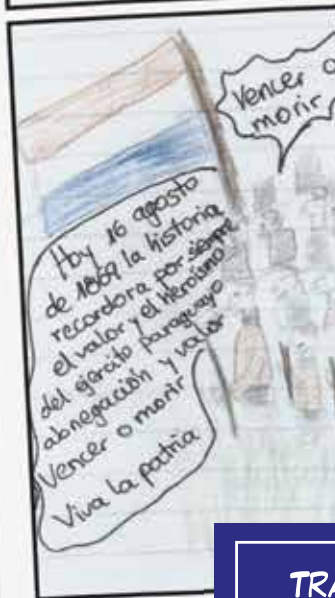 Vencer o
morir
Hoy 16 agosto
de 1869 la historia
recordora por siempre
el valor y el heroismo
del ejercito paraguayo
abnegación y valor
Vencer o morir
Viva la patria
TRA